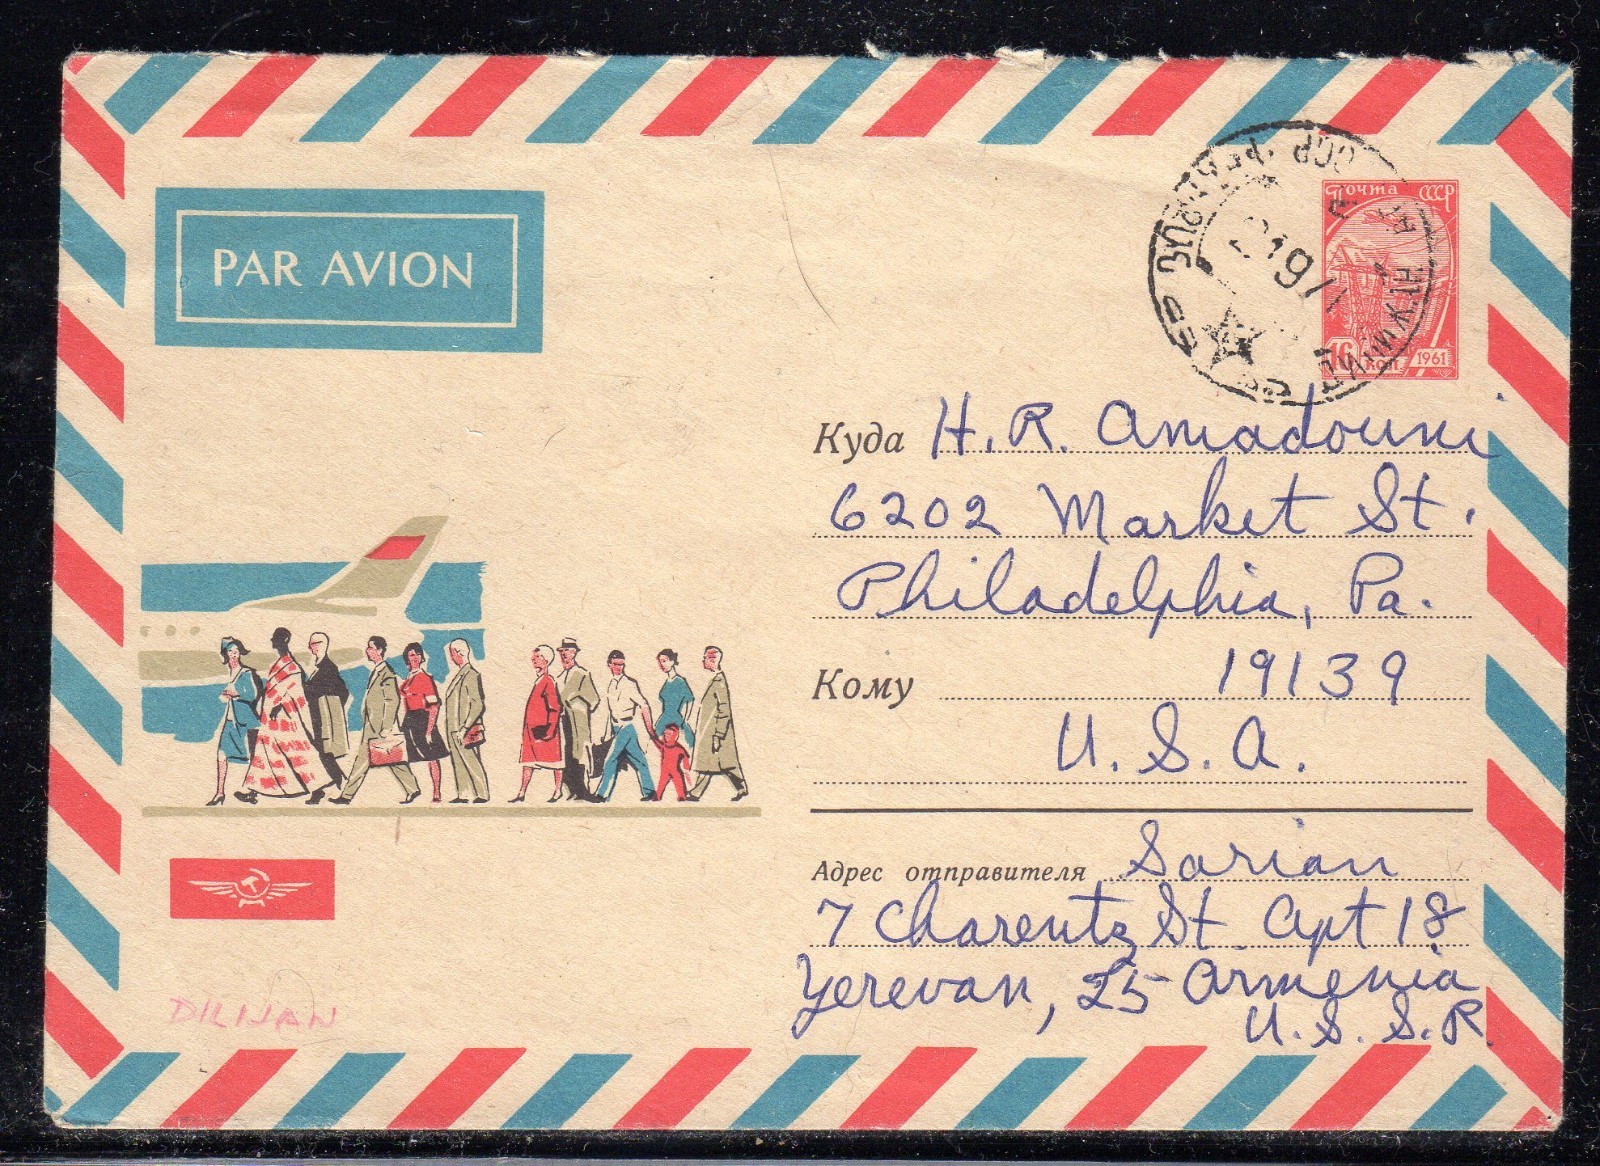 PAR AVION
Почта СССР
16 коп
1961
Куда H. R. Amadouni
6202 Market St.
Philadelphia, Pa.
Кому 19139
U. S. A.
Адрес отправителя Sarian
7 Charentz St. Apt 18
Yerevan, 25 Armenia
U. S. S. R.
DILIJAN